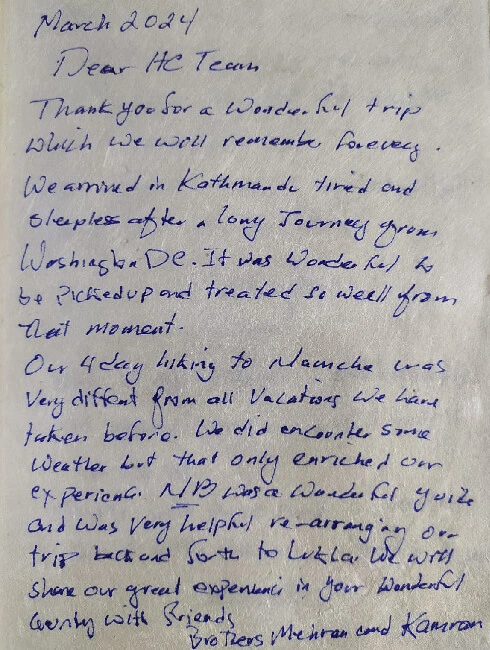 March 2024
Dear HC Team
Thank you for a wonderful trip
which we will remember forever.
We arrived in Kathmandu tired and
sleepless after a long Journey from
Washington DC. It was wonderful to
be Picked up and treated so well from
that moment.
Our 4 day hiking to Namche was
Very diffent from all Vacations we have
taken before. We did encounter some
weather but that only enriched our
experience. was a wonderful guide
and was very helpful re-arranging our
trip back and forth to Lukla. We will
share our great experience in your wonderful
country with friends
Brothers Mehran and Kamran